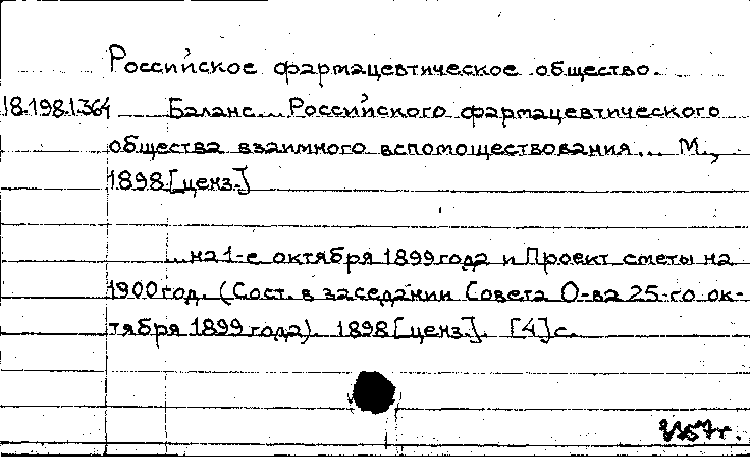 Российское фармацевтическое общество.
18.198.1.364 Баланс... Российского фармацевтического
общества взаимного вспомоществования... М.,
1898 [ценз.]
...на 1-е октября 1899 года и Проект сметы на
1900 год. (Сост. в заседании Совета О-ва 25-го ок-
тября 1899 года). 1898 [ценз.]. [4] с.